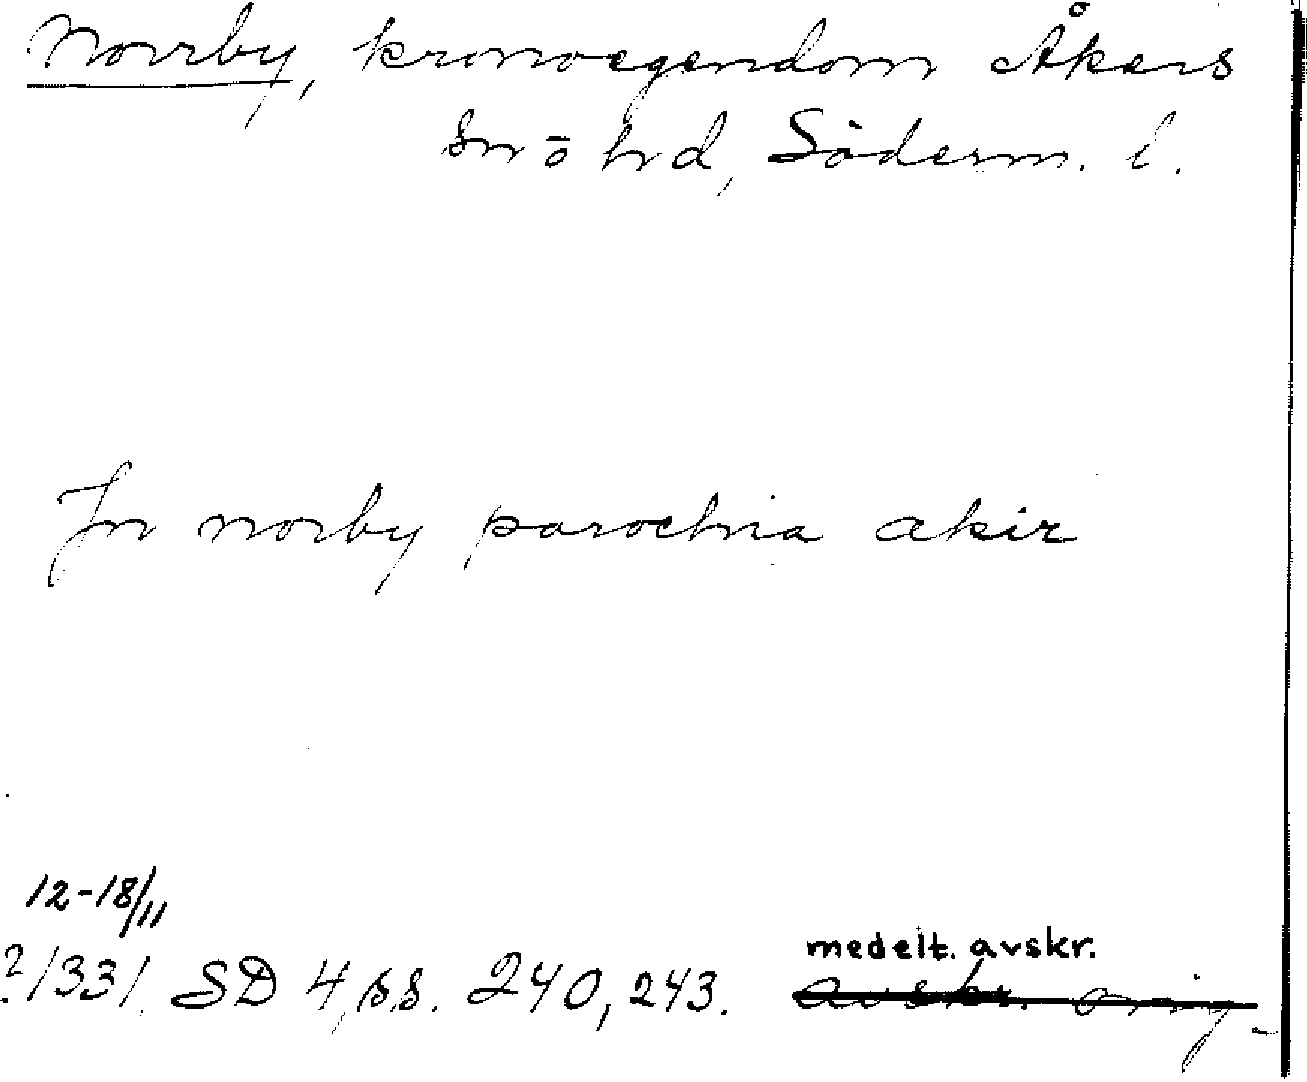 Norrby, kronoegendom Åkers
sn o hd, Söderm. l.
In norby parochia akir
12-18/11
?/1331. SD 4, ss. 240, 243.
medelt. avskr.
avskr. orig.